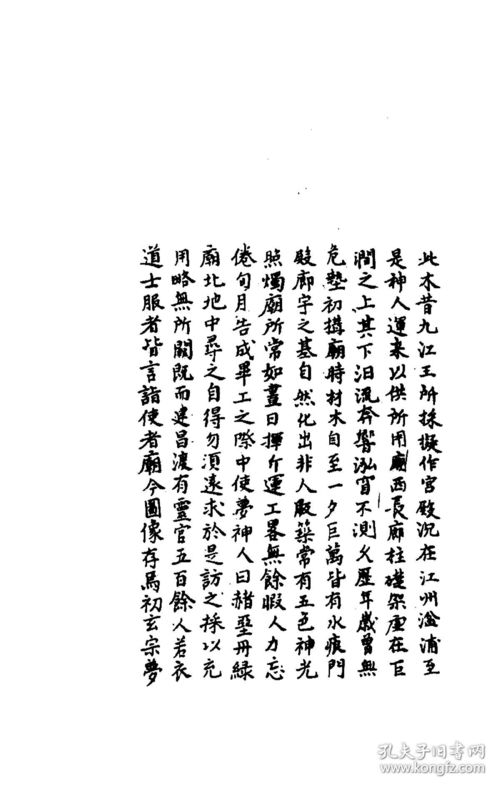 此木昔九江王所採擬作宮殿沉在江州湓浦至
是神人運來以供所用廟西長廊柱礎架虛在巨
澗之上其下汨流奔響泓窅不測久歷年歲曾無
危墊初搆廟時材木自至一夕巨萬皆有水痕門
殿廊宇之基自然化出非人版築常有五色神光
照燭廟所常如晝日揮斤運工畧無餘暇人力忘
倦旬月告成畢工之際中使夢神人曰赭堊丹綠
廟北地中尋之自得勿須遠求於是訪之採以充
用略無所闕既而建昌渡有靈官五百餘人若衣
道士服者皆言詣使者廟今圖像存焉初玄宗夢
孔夫子旧书网
kongfz.com